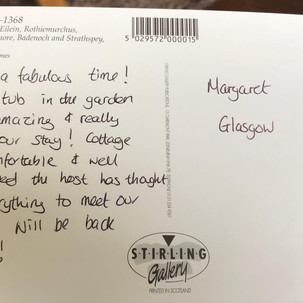 -1368
Eilein, Rothiemurchus,
ore, Badenoch and Strathspey,
5 029572 000015
a fabulous time!
tub in the garden
amazing & really
our stay! Cottage
nfortable & well
ed the host has thought
rything to meet our
Will be back
!
Margaret
Glasgow
STIRLING
Gallery
PRINTED IN SCOTLAND